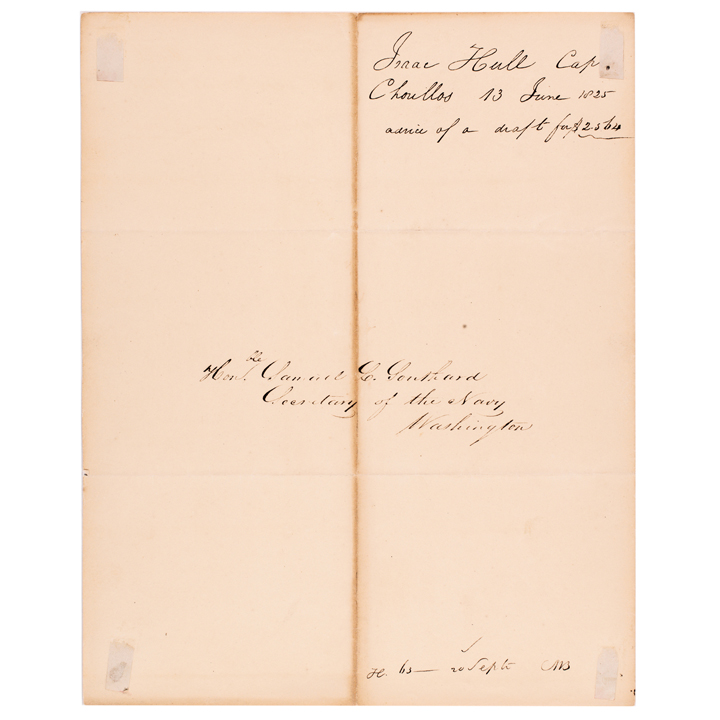 Isaac Hull Cap.
Chorillos 13 June 1825
advice of a draft for $2.564
Honble. Samuel L. Southard
Secretary of the Navy
Washington
H. 63— 20 Septr